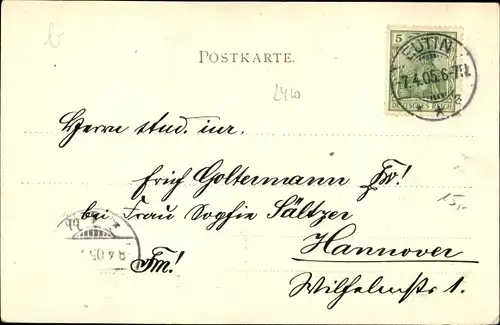 POSTKARTE.
5
DEUTSCHES REICH
EUTIN
7.4.05.6-7N.
2410
Herrn stud. iur.
Erich Goltermann Fr!
bei Frau Sophie Sältzer
Hannover
Fm!
Wilhelmstr 1.
8.4.05.
15,-